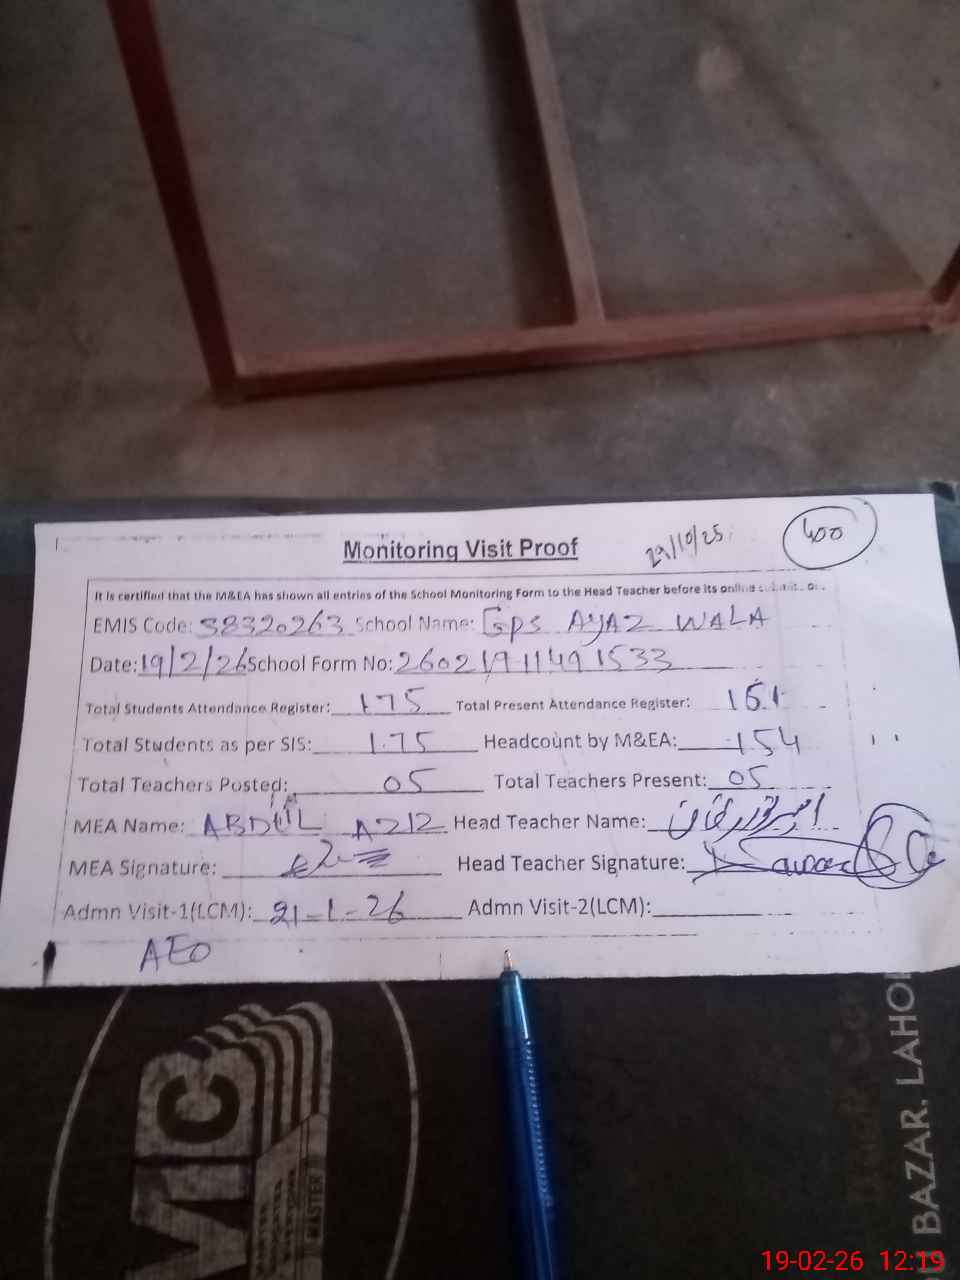 Monitoring Visit Proof
29/10/25
400
It is certified that the M&EA has shown all entries of the School Monitoring Form to the Head Teacher before its online
EMIS Code: 38320263 School Name: GPS AYAZ WALA
Date: 19/2/26 School Form No: 26021911491533
Total Students Attendance Register: 175 Total Present Attendance Register: 151
Total Students as per SIS: 175 Headcount by M&EA: 154
Total Teachers Posted: 05 Total Teachers Present: 05
MEA Name: ABDUL AZIZ Head Teacher Name:
MEA Signature: Head Teacher Signature:
Admn Visit-1(LCM): 21-1-26 Admn Visit-2(LCM):
AEO
MIC
MASTER
BAZAR. LAHO
19-02-26 12:19